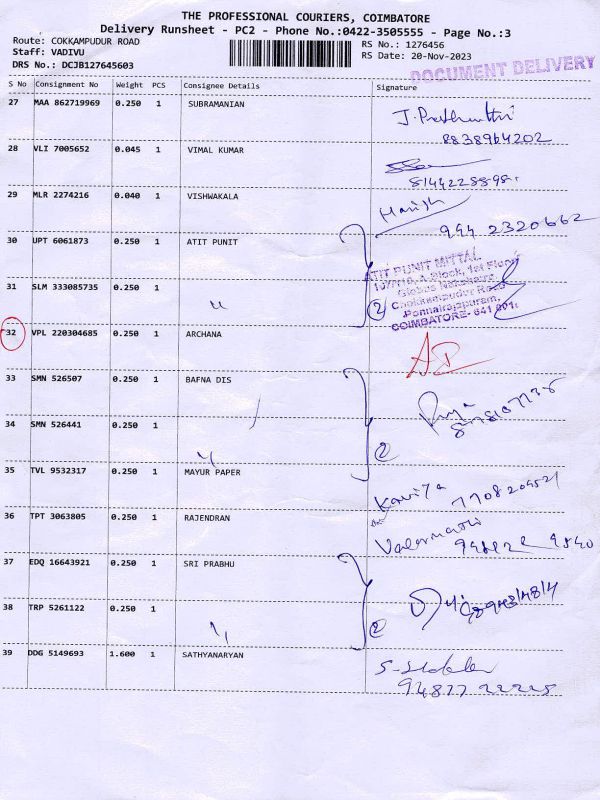 THE PROFESSIONAL COURIERS, COIMBATORE
Delivery Runsheet - PC2 - Phone No.:0422-3505555 - Page No.:3
Route: COKKAMPUDUR ROAD
Staff: VADIVU
DRS No.: DCJB127645603
RS No.: 1276456
RS Date: 20-Nov-2023
DOCUMENT DELIVERY
S No Consignment No Weight PCS Consignee Details Signature
27 MAA 862719969 0.250 1 SUBRAMANIAN
8838964202
28 VLI 7005652 0.045 1 VIMAL KUMAR
8144228898
29 MLR 2274216 0.040 1 VISHWAKALA Harish
944 2320662
30 UPT 6061873 0.250 1 ATIT PUNIT
ATIT PUNIT MITTAL
Block, 1st Floor
Chokkampudur Road
Ponnairajapuram,
COIMBATORE- 641 001.
31 SLM 333085735 0.250 1 〃 2
32 VPL 220304685 0.250 1 ARCHANA
33 SMN 526507 0.250 1 BAFNA DIS
34 SMN 526441 0.250 1 〃 2
35 TVL 9532317 0.250 1 MAYUR PAPER Kavitha
36 TPT 3063805 0.250 1 RAJENDRAN Valarmathi
37 EDQ 16643921 0.250 1 SRI PRABHU
38 TRP 5261122 0.250 1 〃 2
39 DDG 5149693 1.600 1 SATHYANARYAN
94877 22225